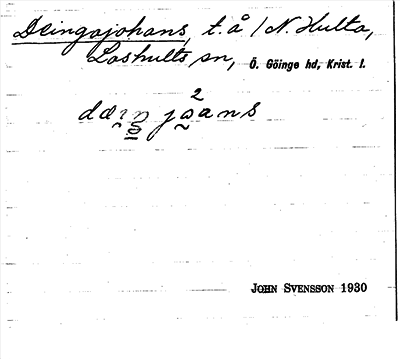 Deingajohans, t.å /N. Hulta,
Loshults sn, Ö. Göinge hd, Krist. l.
JOHN SVENSSON 1930